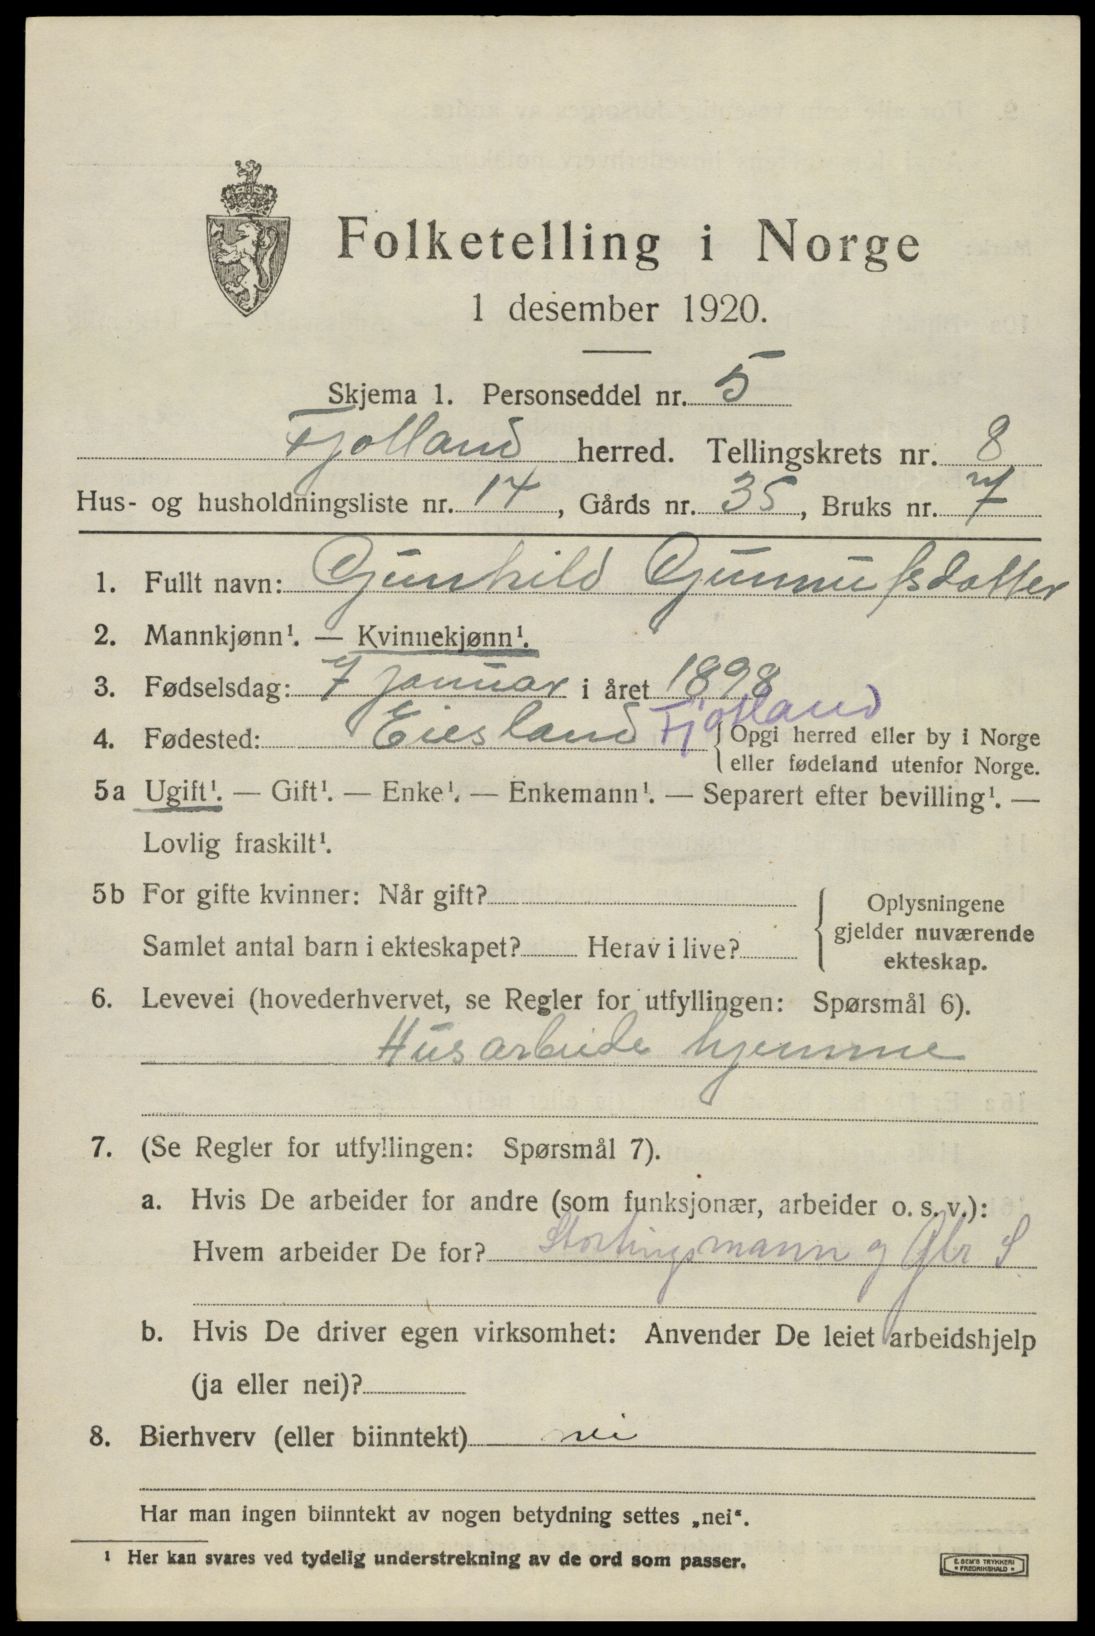 Folketelling i Norge
1 desember 1920.
Skjema 1. Personseddel nr. 5
Fjotland herred. Tellingskrets nr. 8
Hus- og husholdningsliste nr. 14, Gårds nr. 35, Bruks nr. 7
1. Fullt navn: Gunhild Gunnufsdotter
2. Mannkjønn¹. — Kvinnekjønn¹.
3. Fødselsdag: 7 januar i året 1898
4. Fødested: Eiesland Fjotland { Opgi herred eller by i Norge
eller fødeland utenfor Norge.
5a Ugift¹. — Gift¹. — Enke¹. — Enkemann¹. — Separert efter bevilling¹. —
Lovlig fraskilt¹.
5b For gifte kvinner: Når gift?
Samlet antal barn i ekteskapet? Herav i live?
Oplysningene
gjelder nuværende
ekteskap.
6. Levevei (hovederhvervet, se Regler for utfyllingen: Spørsmål 6).
Husarbeide hjemme
7. (Se Regler for utfyllingen: Spørsmål 7).
a. Hvis De arbeider for andre (som funksjonær, arbeider o. s. v.):
Hvem arbeider De for? Stortingsmann og Gbr S.
b. Hvis De driver egen virksomhet: Anvender De leiet arbeidshjelp
(ja eller nei)?
8. Bierhverv (eller biinntekt) nei
Har man ingen biinntekt av nogen betydning settes „nei“.
¹ Her kan svares ved tydelig understrekning av de ord som passer.
E. SEM'S TRYKKERI
FREDRIKSHALD